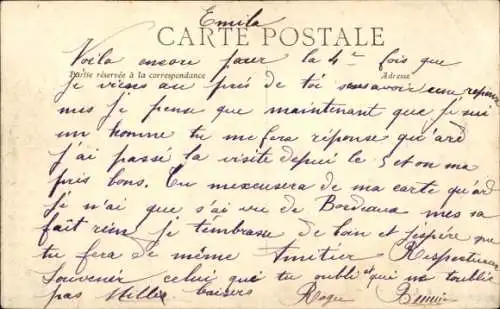 Emila
CARTE POSTALE
Voila encore pour la 4e fois que
Partie réservée à la correspondance
Adresse
je viens au près de toi sans avoir eue repons
mes je pense que maintenant que je sui
un homme tu me fera réponse qu'ard
j'ai passé la visite depui le 5 et on ma
pris bons. Tu mexcusera de ma carte qu'ard
je n'ai que s'ai vu de Bordeaux mes sa
fait rien je t'embrasse de loin et j'espère que
tu fera de même Amitier Respectueux
Souvenir celui qui tu oubli et qui ne t'oublie
pas Mille baisers Roger